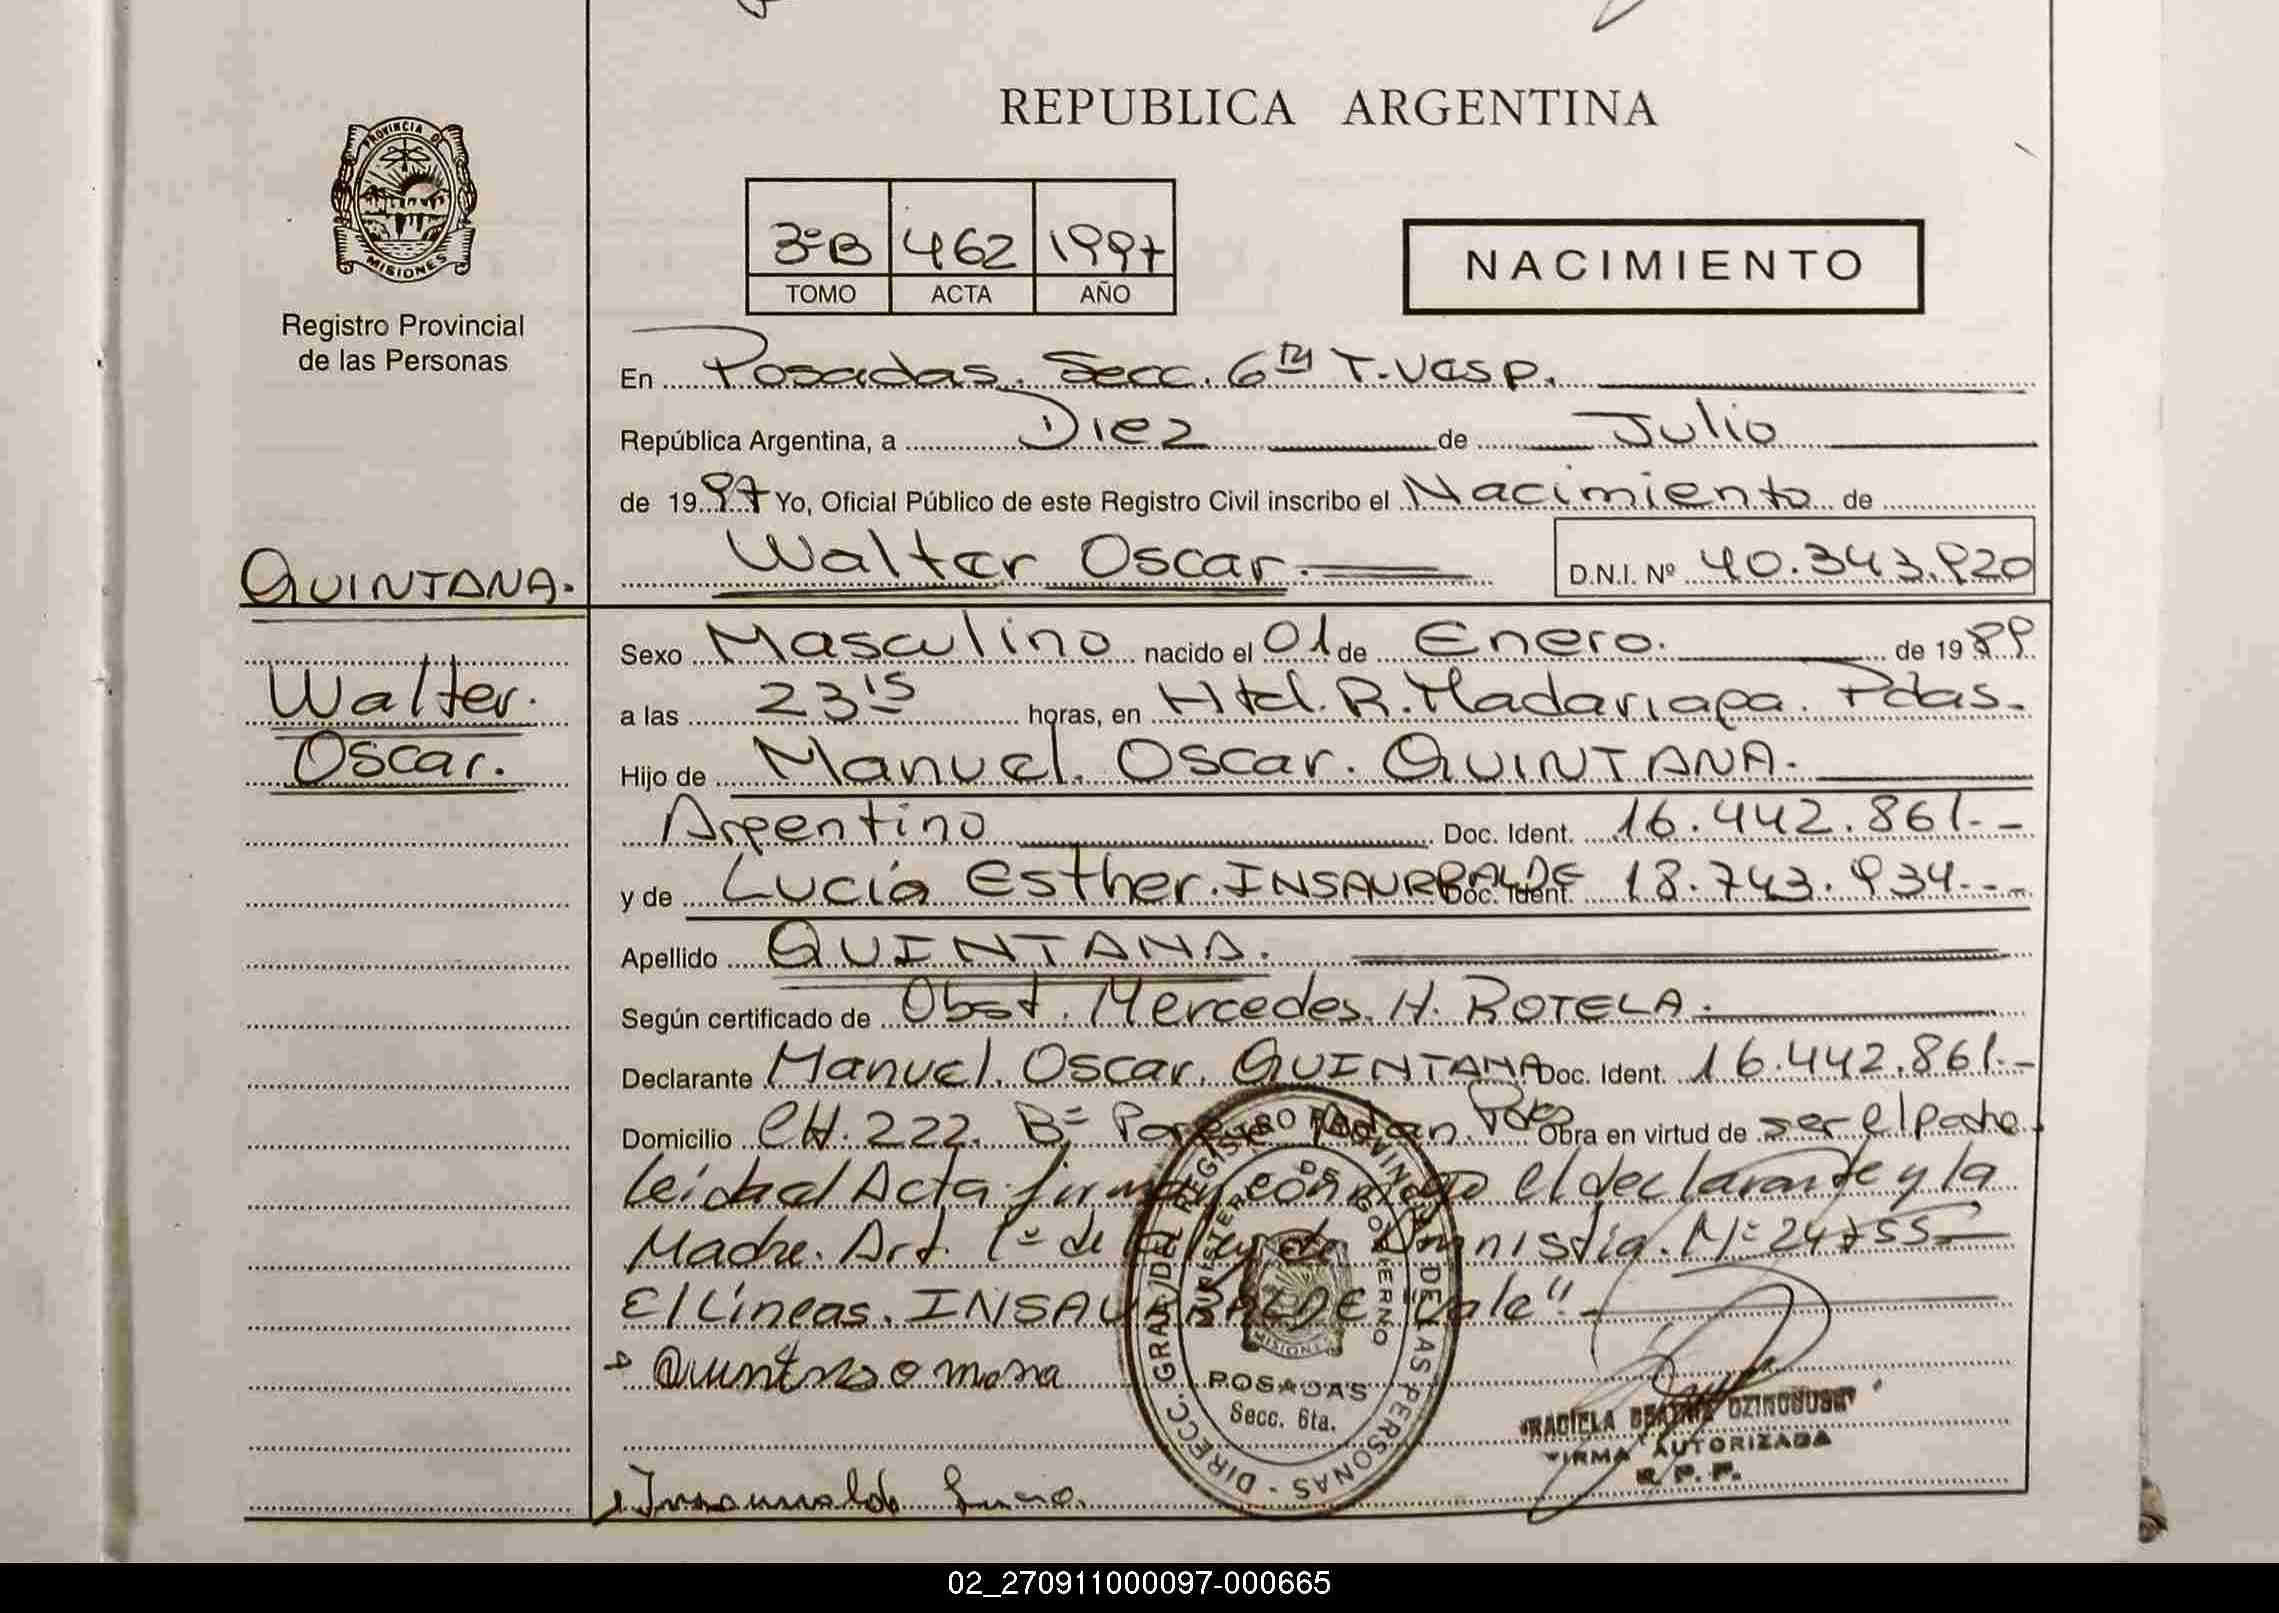 REPUBLICA ARGENTINA
PROVINCIA DE
MISIONES
Registro Provincial
de las Personas
3ºB 462 1997
TOMO ACTA AÑO
NACIMIENTO
En Posadas. Secc. 6ta T. Vesp.
República Argentina, a Diez de Julio
de 1997 Yo, Oficial Público de este Registro Civil inscribo el Nacimiento de
Walter Oscar.
D.N.I. Nº 40.343.920
QUINTANA.
Walter.
Oscar.
Sexo Masculino nacido el 01 de Enero. de 1989
a las 23 15 horas, en Htal. R. Madariaga. Pdas.
Hijo de Manuel. Oscar. QUINTANA.
Argentino Doc. Ident. 16.442.861.--
y de Lucía Esther. INSAURRALDE Doc. Ident. 18.743.934.--
Apellido QUINTANA.
Según certificado de Obst. Mercedes. H. ROTELA.
Declarante Manuel. Oscar. QUINTANA Doc. Ident. 16.442.861.-
Domicilio CH. 222. Bº Obra en virtud de ser el padre.
Leída el Acta firman conmigo el declarante y la
Madre. Art. 1º de la ley de Amnistía. Nº 24755
E/Líneas. INSAURRALDE "Vale".-
DIRECC. GRAL. DEL REGISTRO PROVINCIAL DE LAS PERSONAS
MINISTERIO DE GOBIERNO
MISIONES
POSADAS
Secc. 6ta.
FIRMA AUTORIZADA
R. P. P.
02_270911000097-000665